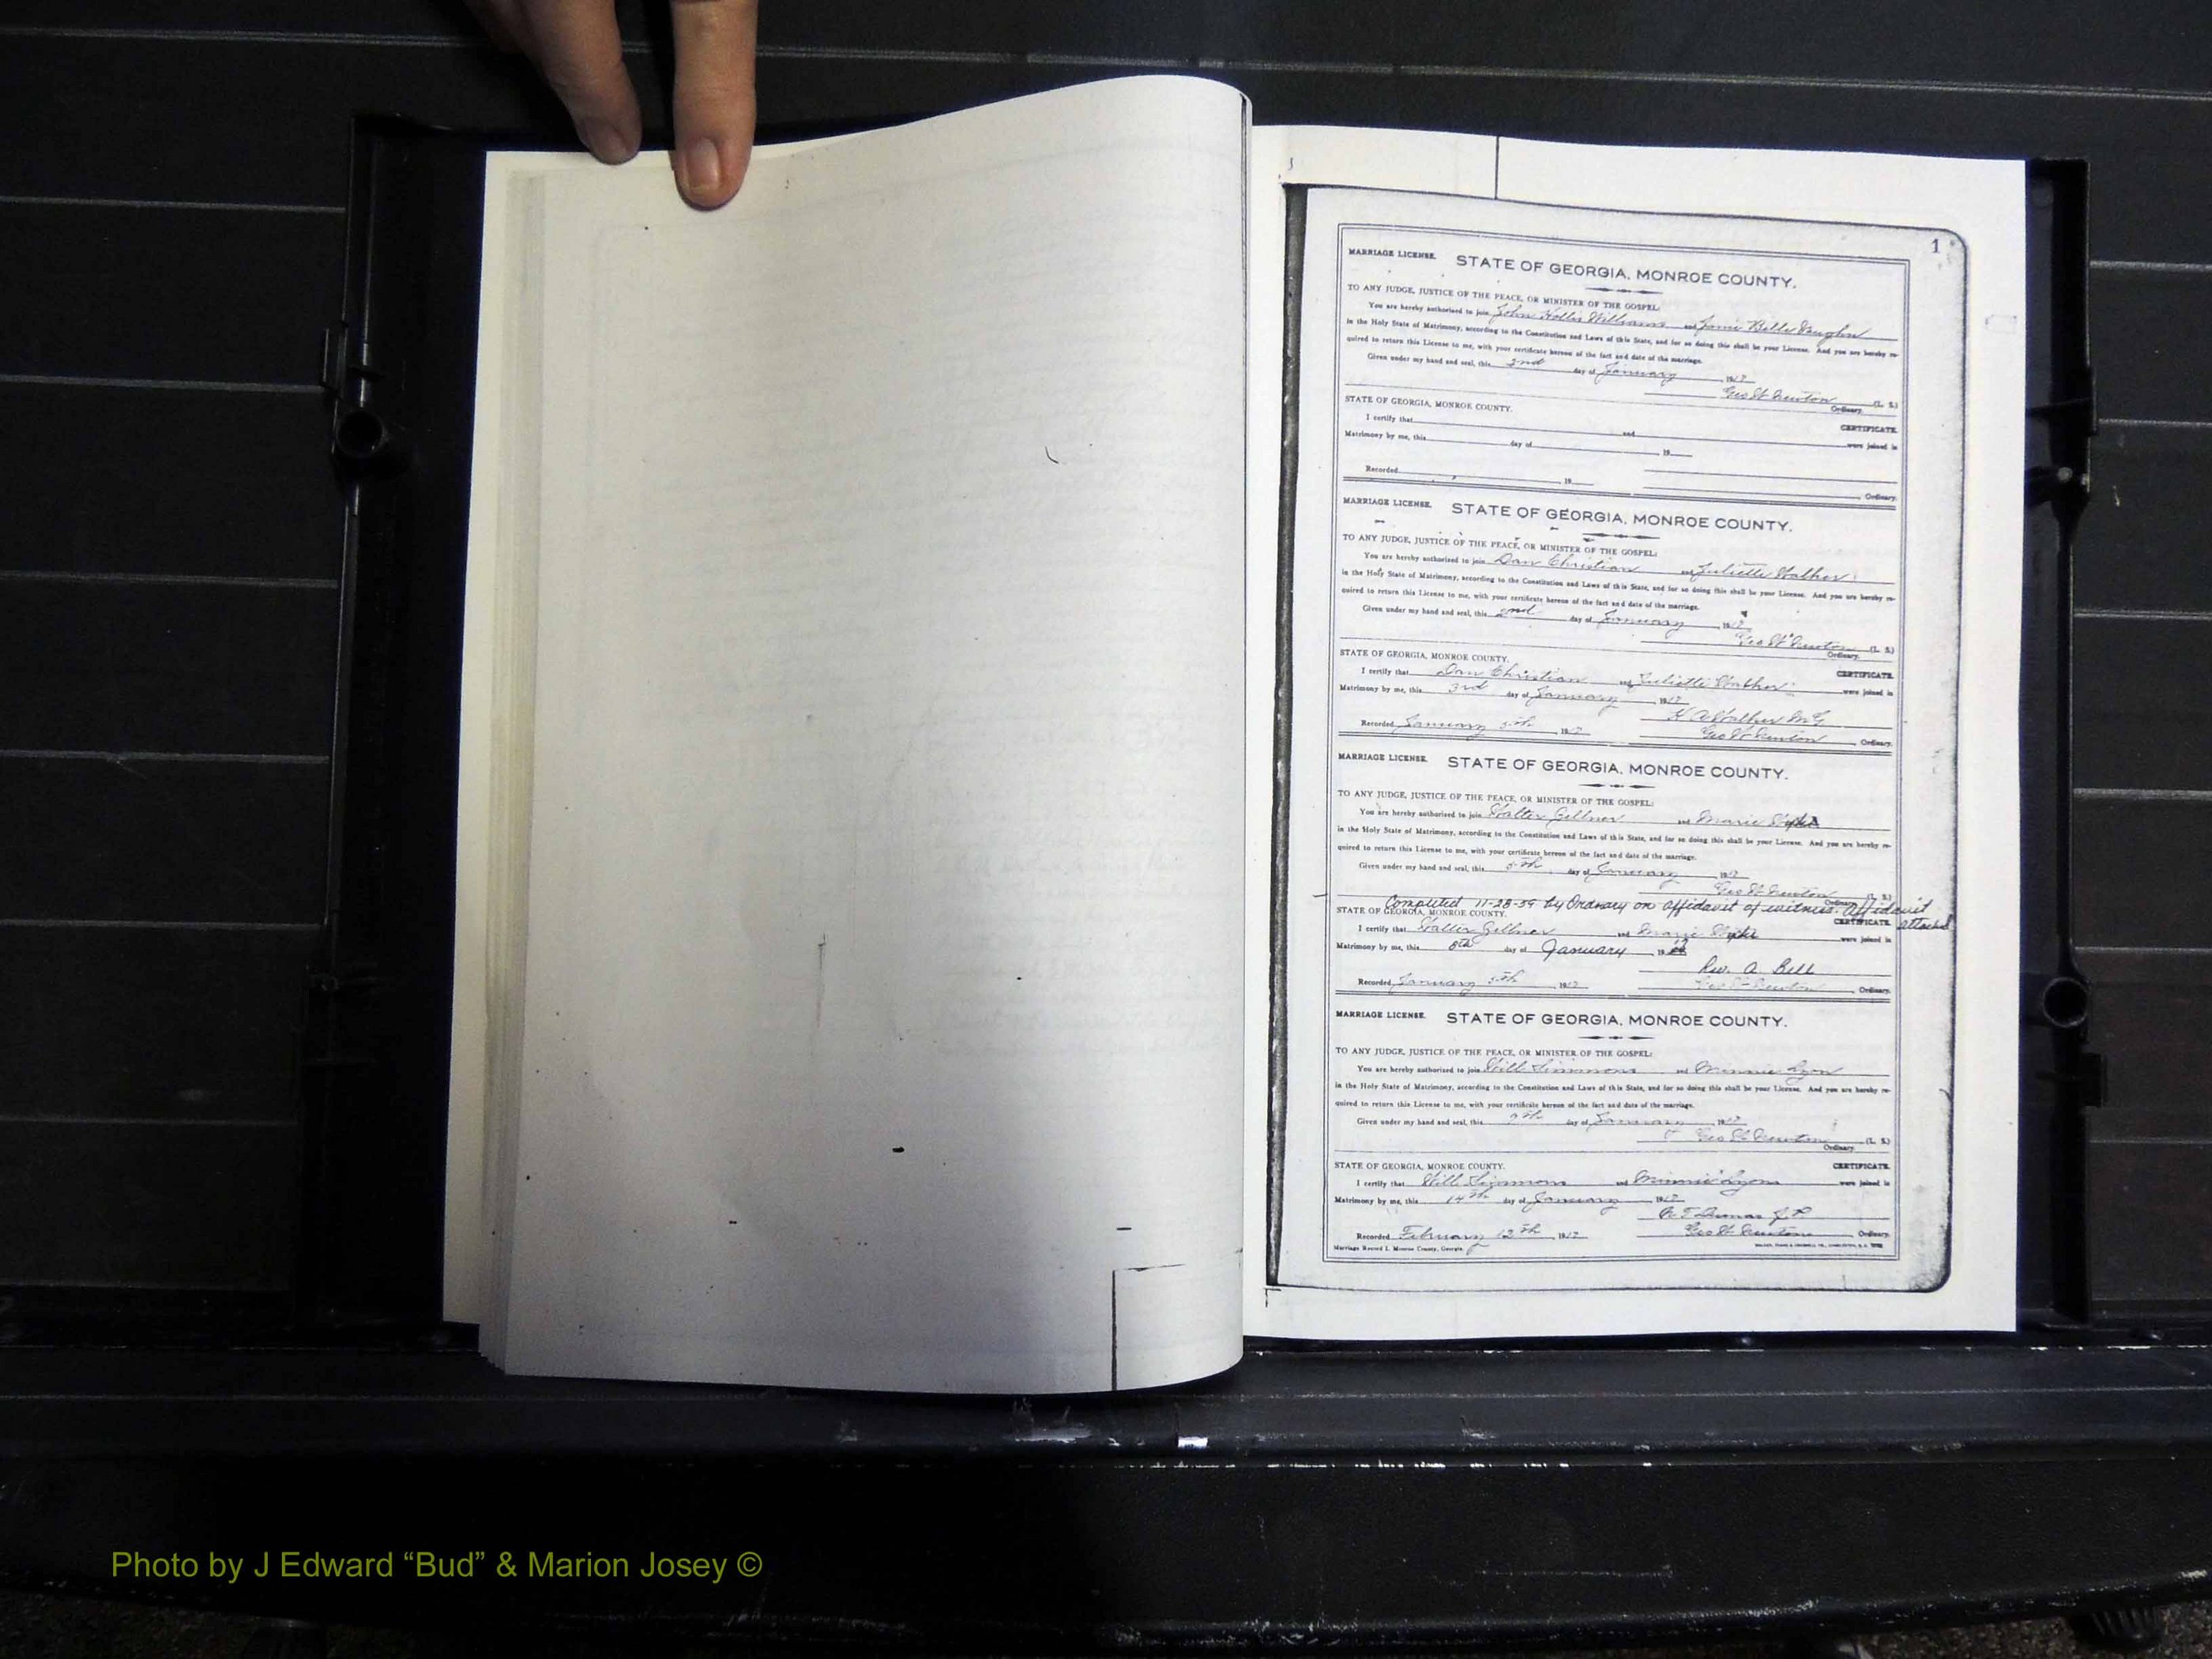 1
MARRIAGE LICENSE. STATE OF GEORGIA, MONROE COUNTY.
TO ANY JUDGE, JUSTICE OF THE PEACE, OR MINISTER OF THE GOSPEL:
You are hereby authorized to join John Hollis Williams and Janie Belle Vaughn
in the Holy State of Matrimony, according to the Constitution and Laws of this State, and for so doing this shall be your License. And you are hereby re-
quired to return this License to me, with your certificate hereon of the fact and date of the marriage.
Given under my hand and seal, this 2nd day of January 19
Geo W Newton (L. S.)
Ordinary.
STATE OF GEORGIA, MONROE COUNTY.
CERTIFICATE.
I certify that and were joined in
Matrimony by me, this day of 19
Recorded 19
Ordinary.
MARRIAGE LICENSE. STATE OF GEORGIA, MONROE COUNTY.
TO ANY JUDGE, JUSTICE OF THE PEACE, OR MINISTER OF THE GOSPEL:
You are hereby authorized to join Dan Christian and Juliette Walker
in the Holy State of Matrimony, according to the Constitution and Laws of this State, and for so doing this shall be your License. And you are hereby re-
quired to return this License to me, with your certificate hereon of the fact and date of the marriage.
Given under my hand and seal, this 2nd day of January 19
Geo W Newton (L. S.)
Ordinary.
STATE OF GEORGIA, MONROE COUNTY.
CERTIFICATE.
I certify that Dan Christian and Juliette Walker were joined in
Matrimony by me, this 3rd day of January 19
Walker M.G.
Recorded January 5th 19 Geo W Newton Ordinary.
MARRIAGE LICENSE. STATE OF GEORGIA, MONROE COUNTY.
TO ANY JUDGE, JUSTICE OF THE PEACE, OR MINISTER OF THE GOSPEL:
You are hereby authorized to join Walter Gellner and Marie
in the Holy State of Matrimony, according to the Constitution and Laws of this State, and for so doing this shall be your License. And you are hereby re-
quired to return this License to me, with your certificate hereon of the fact and date of the marriage.
Given under my hand and seal, this 5th day of January 19
Geo W Newton (L. S.)
Ordinary.
Completed 11-28-59 by Ordinary on affidavit of witness. affidavit attached
STATE OF GEORGIA, MONROE COUNTY.
CERTIFICATE.
I certify that Walter Gellner and Marie were joined in
Matrimony by me, this 8th day of January 19
Rev. A Bell
Recorded January 5th 19 Geo W Newton Ordinary.
MARRIAGE LICENSE. STATE OF GEORGIA, MONROE COUNTY.
TO ANY JUDGE, JUSTICE OF THE PEACE, OR MINISTER OF THE GOSPEL:
You are hereby authorized to join Will Simmons and Minnie Lyon
in the Holy State of Matrimony, according to the Constitution and Laws of this State, and for so doing this shall be your License. And you are hereby re-
quired to return this License to me, with your certificate hereon of the fact and date of the marriage.
Given under my hand and seal, this day of January 19
Geo W Newton (L. S.)
Ordinary.
STATE OF GEORGIA, MONROE COUNTY.
CERTIFICATE.
I certify that Will Simmons and Minnie Lyons were joined in
Matrimony by me, this 14th day of January 19
Dumas J.P.
Recorded February 12th 19 Geo W Newton Ordinary.
Marriage Record I, Monroe County, Georgia.
Photo by J Edward “Bud” & Marion Josey ©